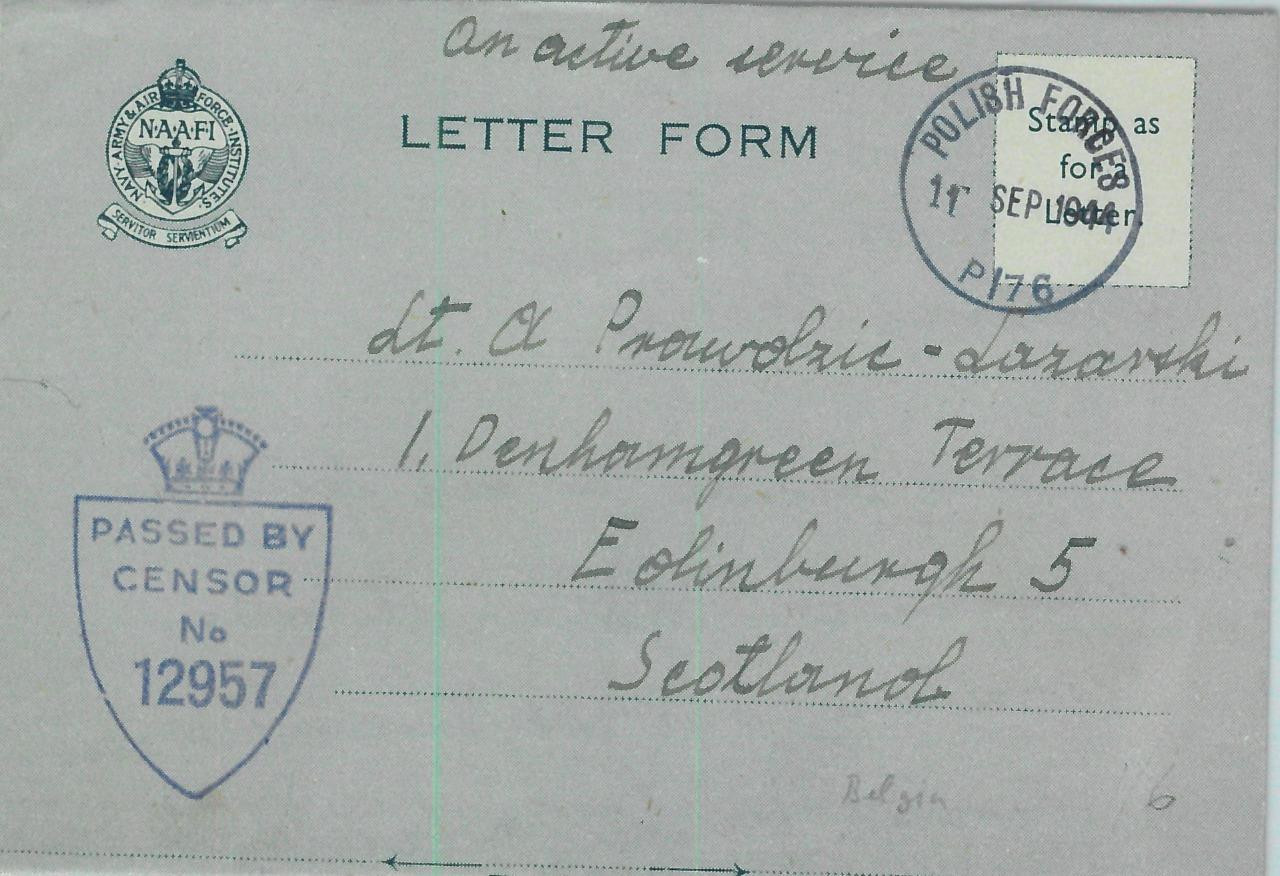 On active service
NAVY, ARMY & AIR FORCE · INSTITUTES.
N·A·A·F·I
SERVITOR SERVIENTIUM
LETTER FORM
Stamp as
for a
Letter.
POLISH FORCES
SEP 1944
P176
Lt. A Prawdzic - Lazarski
1, Denhamgreen Terrace
Edinburgh 5
Scotland
PASSED BY
CENSOR
No
12957
Belgia
6